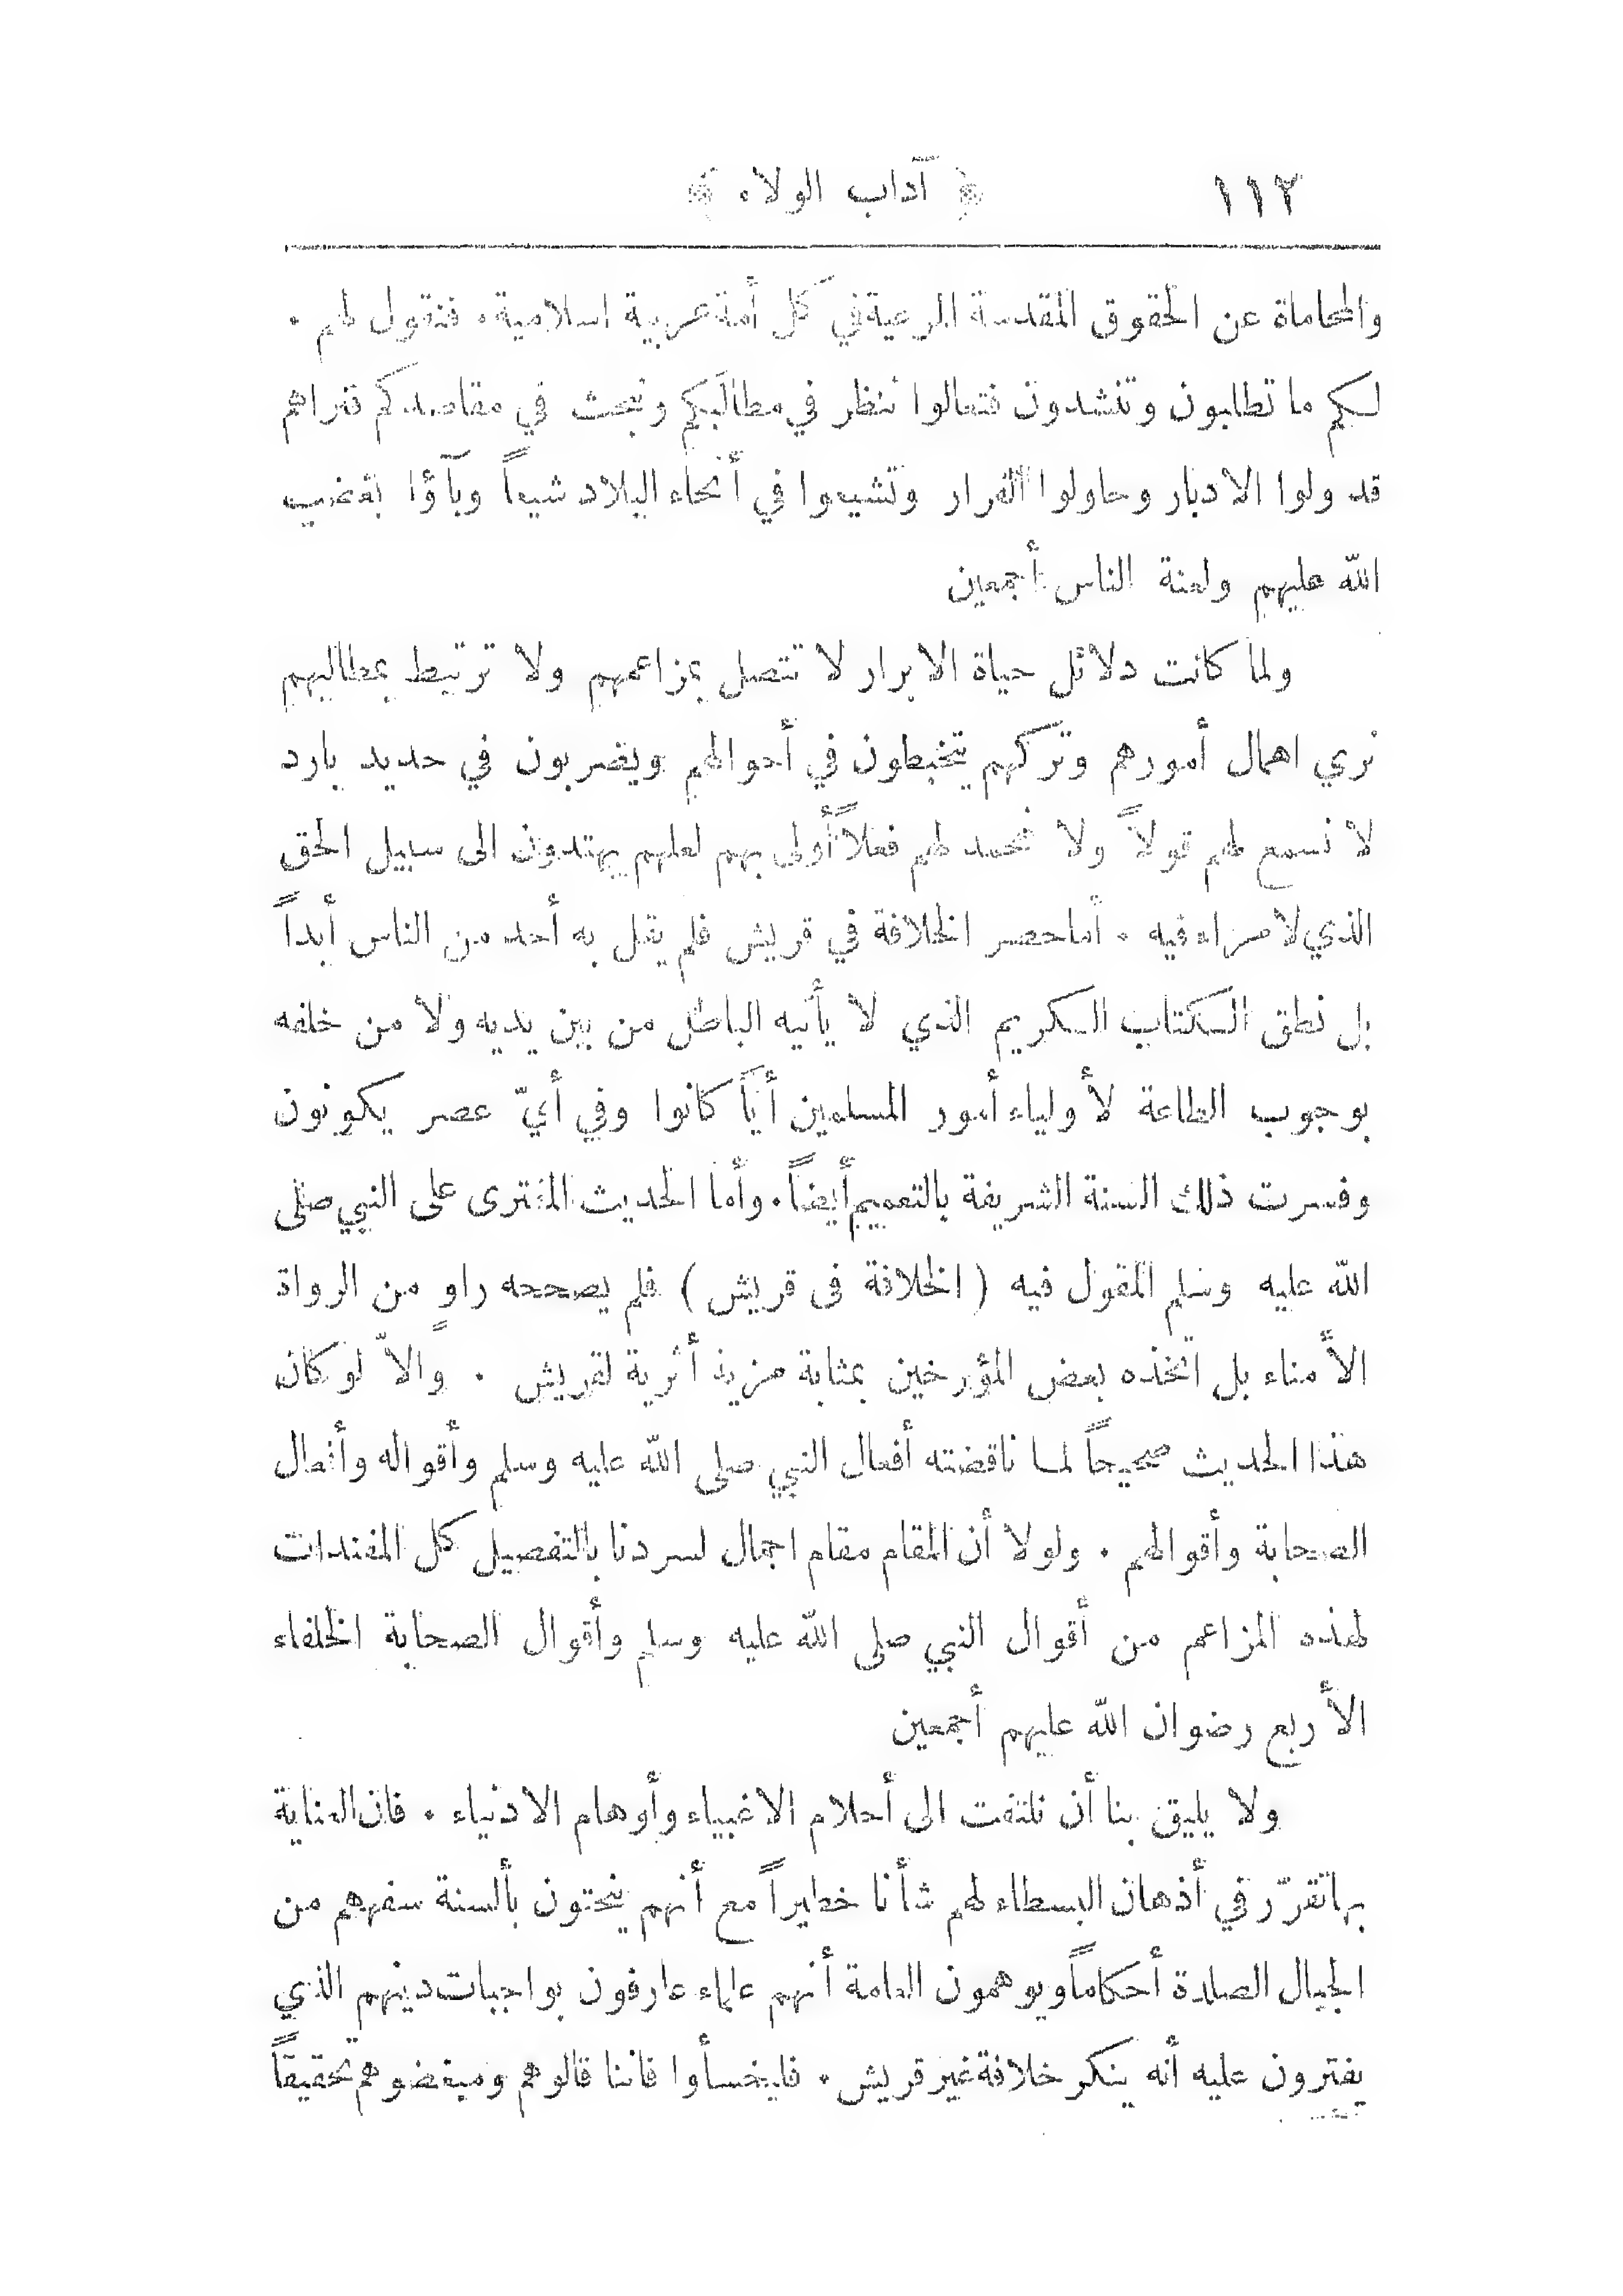 ١١٢ ﴿ آداب الولاء ﴾
والمحاماة عن الحقوق المقدسة المرعية في كل أمة عربية اسلامية . فنقول لهم .
لكم ما تطلبون وتنشدون فتعالوا ننظر في مطالبكم ونبحث في مقاصدكم فتراهم
قد ولوا الادبار وحاولوا الفرار وتشيعوا في أنحاء البلاد شيعاً وبآؤا بغضب
الله عليهم ولعنة الناس أجمعين
ولما كانت دلائل حياة الابرار لا تتصل بمزاعمهم ولا ترتبط بمطالبهم
نري اهمال أمورهم وتركهم يتخبطون في أحوالهم ويضربون في حديد بارد
لا نسمع لهم قولاً ولا نحمد لهم فعلاً أولى بهم لعلهم يهتدون الى سبيل الحق
الذي لا مراء فيه . أما حصر الخلافة في قريش فلم يقل به أحد من الناس أبداً
بل نطق الكتاب الكريم الذي لا يأتيه الباطل من بين يديه ولا من خلفه
بوجوب الطاعة لأولياء أمور المسلمين أيّاً كانوا وفي أيّ عصر يكونون
وفسرت ذلك السنة الشريفة بالتعميم أيضاً . وأما الحديث المفترى على النبي صلى
الله عليه وسلم المقول فيه ( الخلافة فى قريش ) فلم يصححه راوٍ من الرواة
الأمناء بل اتخذه بعض المؤرخين بمثابة مزية أثرية لقريش . والاّ لو كان
هذا الحديث صحيحاً لما ناقضته أفعال النبي صلى الله عليه وسلم وأقواله وأفعال
الصحابة وأقوالهم . ولولا أن المقام مقام اجمال لسردنا بالتفصيل كل المفندات
لهذه المزاعم من أقوال النبي صلى الله عليه وسلم وأقوال الصحابة الخلفاء
الأربع رضوان الله عليهم أجمعين
ولا يليق بنا أن نلتفت الى أحلام الاغبياء وأوهام الادنياء . فان العناية
بها تقرّر في أذهان البسطاء لهم شأنا خطيراً مع أنهم ينحتون بألسنة سفههم من
الجبال الصلدة أحكاماً ويوهمون العامة أنهم علماء عارفون بواجبات دينهم الذي
يفترون عليه أنه ينكر خلافة غير قريش . فليخسأوا فاننا قالوهم ومبغضوهم تحقيقاً